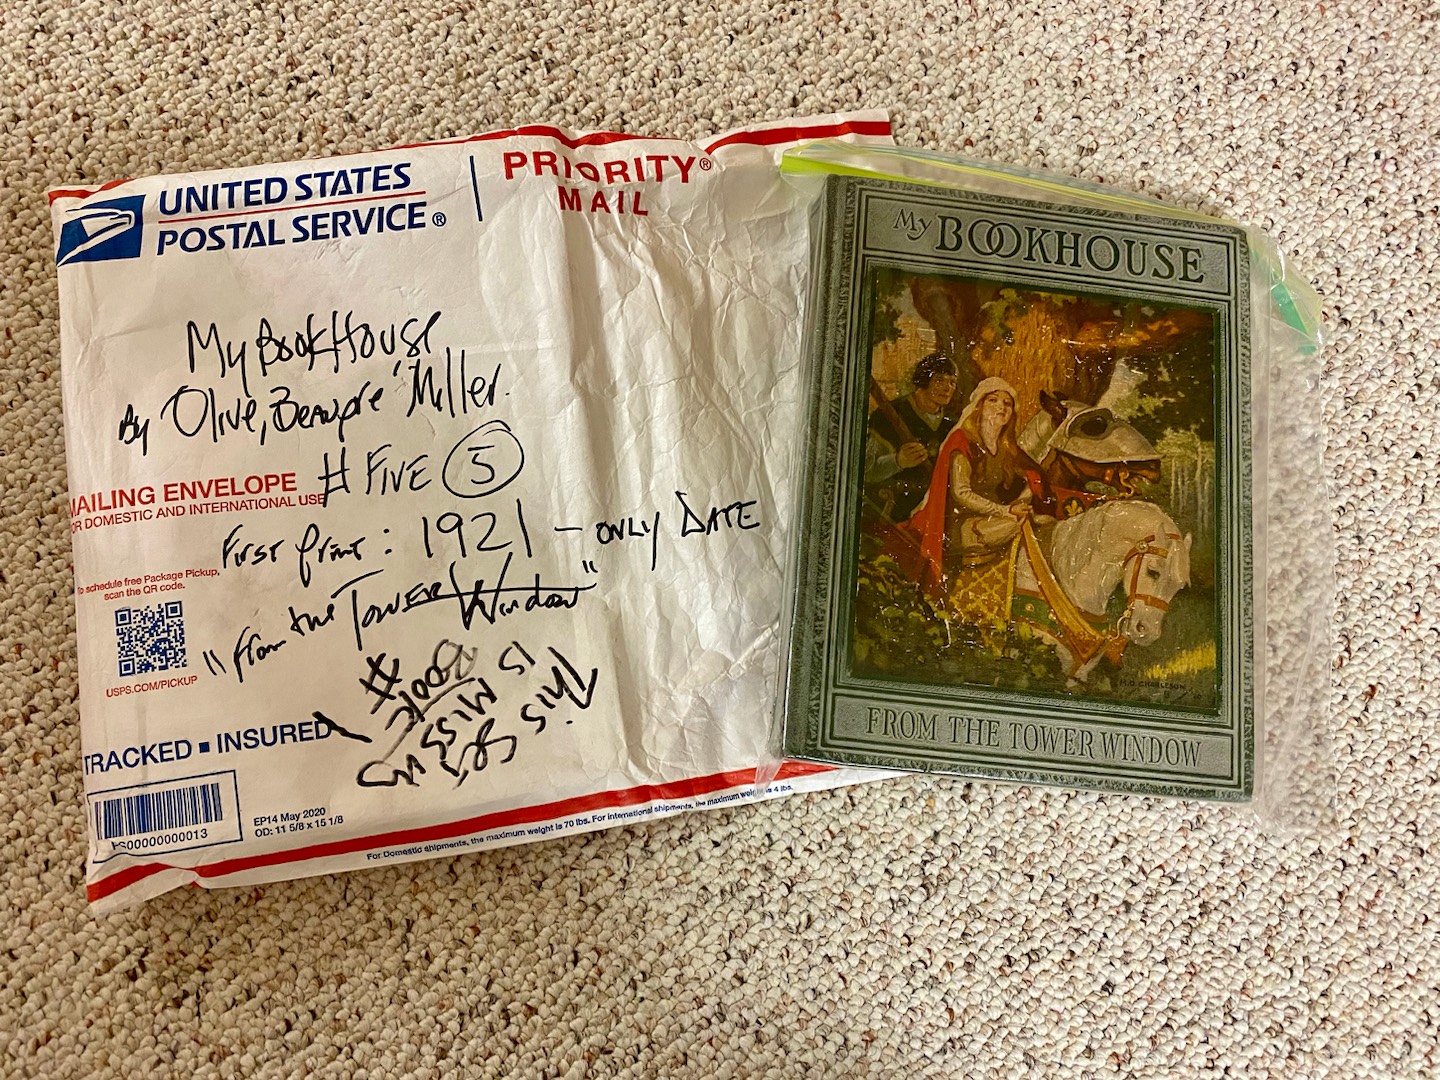 UNITED STATES
POSTAL SERVICE®
PRIORITY®
MAIL
My BOOKHOUSE
By Olive, Beaupre' Miller.
# FIVE 5
MAILING ENVELOPE
OR DOMESTIC AND INTERNATIONAL USE
First print: 1921 - ONLY DATE
"From the Tower Window"
To schedule free Package Pickup,
scan the QR code.
USPS.COM/PICKUP
This
IS MISSING
Book
#
TRACKED ■ INSURED
PS00000000013
EP14 May 2020
OD: 11 5/8 x 15 1/8
For Domestic shipments, the maximum weight is 70 lbs. For international shipments, the maximum weight is 4 lbs.
My BOOKHOUSE
FROM THE TOWER WINDOW